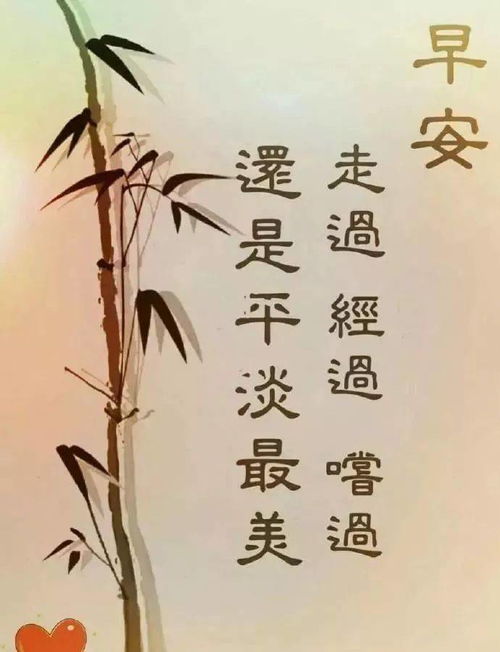 早安
走過 經過 嚐過
還是平淡最美